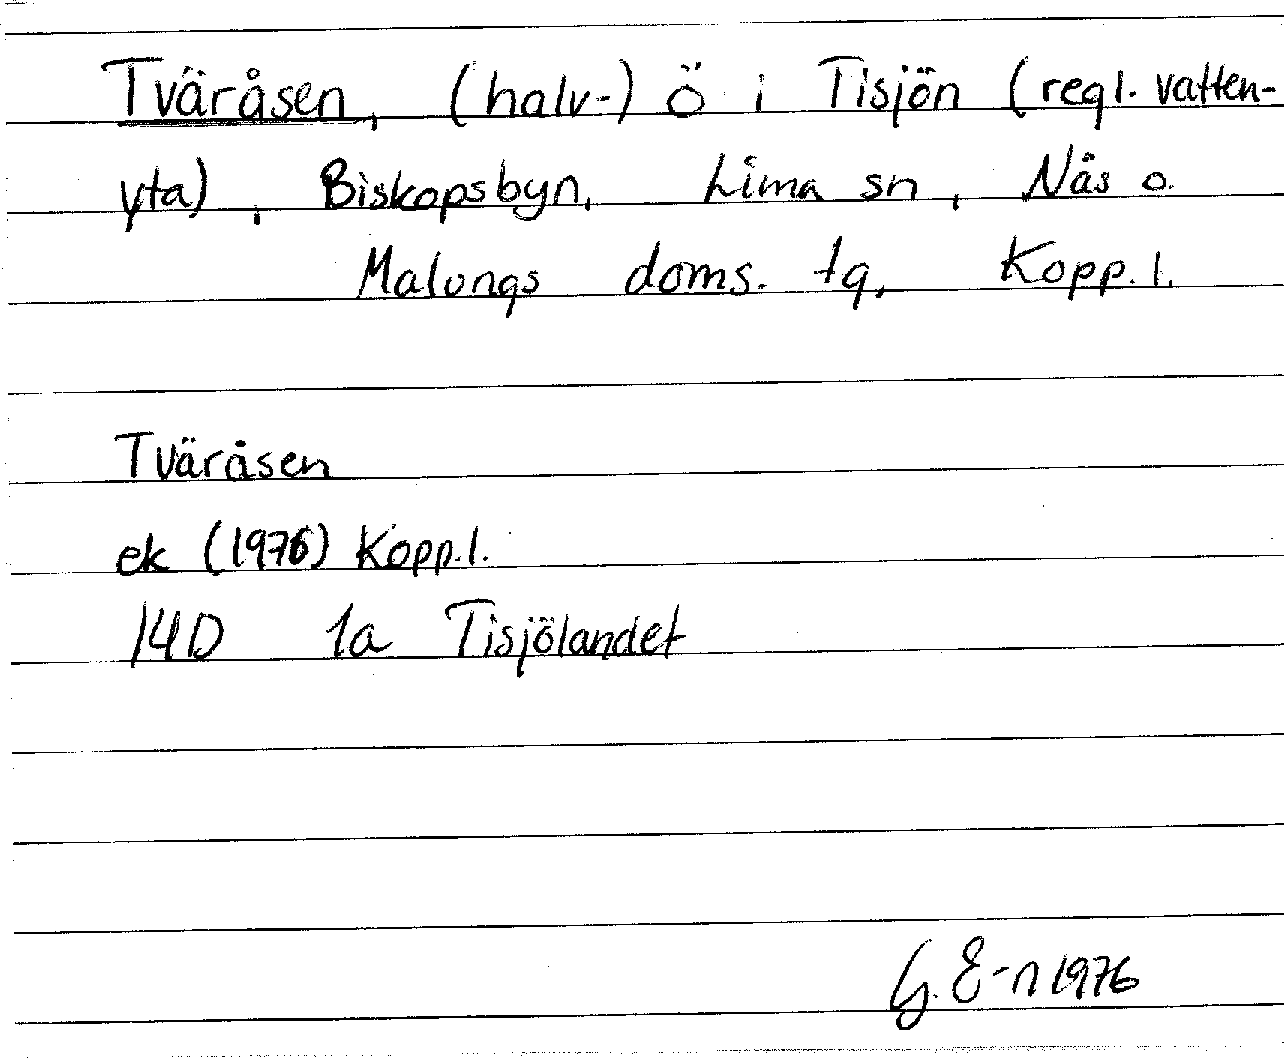 Tväråsen, (halv-) ö i Tisjön (regl. vatten-
yta), Biskopsbyn, Lima sn, Nås o.
Malungs doms. tg, Kopp. l.
Tväråsen
ek (1976) Kopp. l.
14D 1a Tisjölandet
G. E-n 1976